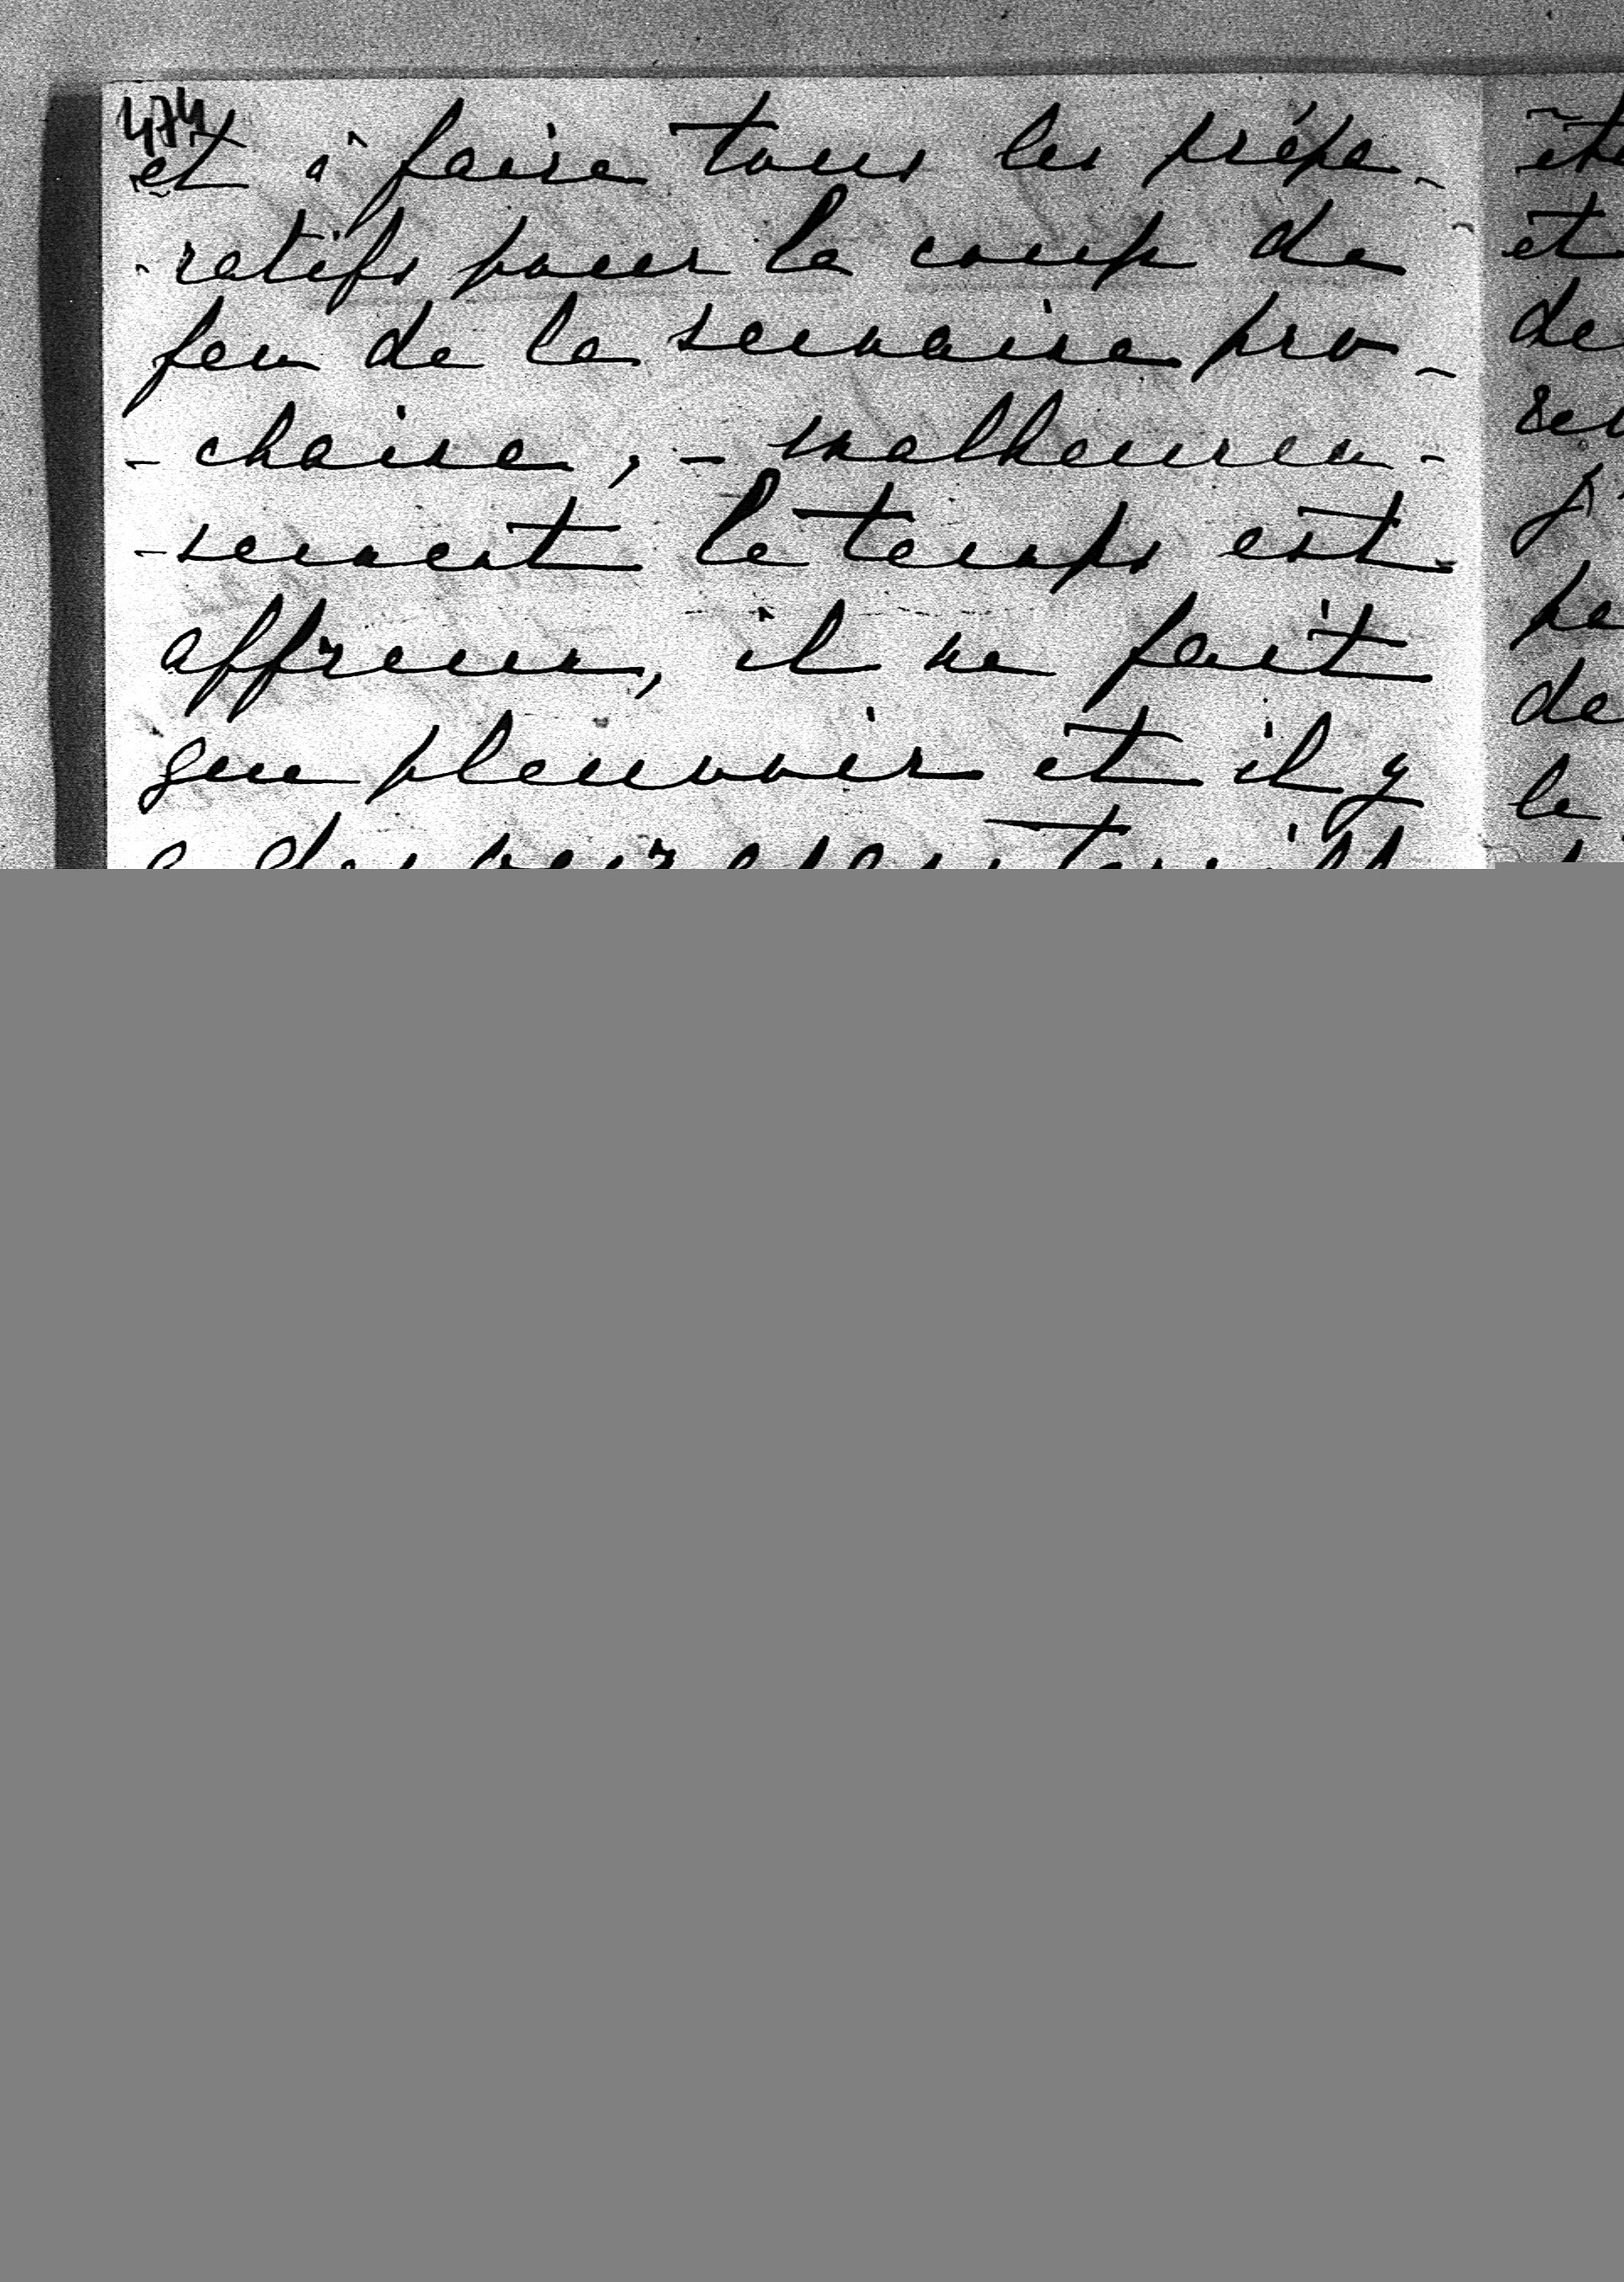 474
et à faire tous les prépa-
-ratifs pour le coup de
feu de la semaine pro-
-chaine, - malheureu-
-sement le temps est
affreux, il ne fait
que pleuvoir et il y
et
de
le